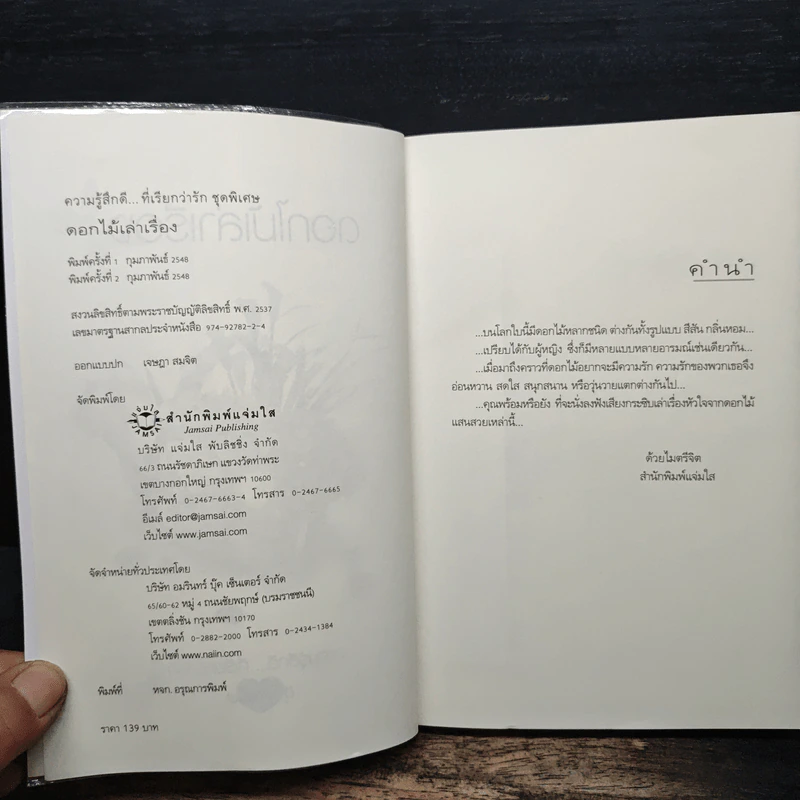 ความรู้สึกดี... ที่เรียกว่ารัก ชุดพิเศษ
ดอกไม้เล่าเรื่อง
พิมพ์ครั้งที่ 1 กุมภาพันธ์ 2548
พิมพ์ครั้งที่ 2 กุมภาพันธ์ 2548
สงวนลิขสิทธิ์ตามพระราชบัญญัติลิขสิทธิ์ พ.ศ. 2537
เลขมาตรฐานสากลประจำหนังสือ 974-92782-2-4
ออกแบบปก เจษฎา สมจิต
จัดพิมพ์โดย
สำนักพิมพ์แจ่มใส
Jamsai Publishing
บริษัท แจ่มใส พับลิชชิ่ง จำกัด
66/3 ถนนรัชดาภิเษก แขวงวัดท่าพระ
เขตบางกอกใหญ่ กรุงเทพฯ 10600
โทรศัพท์ 0-2467-6663-4 โทรสาร 0-2467-6665
อีเมล์ editor@jamsai.com
เว็บไซต์ www.jamsai.com
จัดจำหน่ายทั่วประเทศโดย
บริษัท อมรินทร์ บุ๊ค เซ็นเตอร์ จำกัด
65/60-62 หมู่ 4 ถนนชัยพฤกษ์ (บรมราชชนนี)
เขตตลิ่งชัน กรุงเทพฯ 10170
โทรศัพท์ 0-2882-2000 โทรสาร 0-2434-1384
เว็บไซต์ www.naiin.com
พิมพ์ที่ หจก. อรุณการพิมพ์
ราคา 139 บาท
คำนำ
...บนโลกใบนี้มีดอกไม้หลากชนิด ต่างกันทั้งรูปแบบ สีสัน กลิ่นหอม...
...เปรียบได้กับผู้หญิง ซึ่งก็มีหลายแบบหลายอารมณ์เช่นเดียวกัน...
...เมื่อมาถึงคราวที่ดอกไม้อยากจะมีความรัก ความรักของพวกเธอจึง
อ่อนหวาน สดใส สนุกสนาน หรือวุ่นวายแตกต่างกันไป...
...คุณพร้อมหรือยัง ที่จะนั่งลงฟังเสียงกระซิบเล่าเรื่องหัวใจจากดอกไม้
แสนสวยเหล่านี้...
ด้วยไมตรีจิต
สำนักพิมพ์แจ่มใส